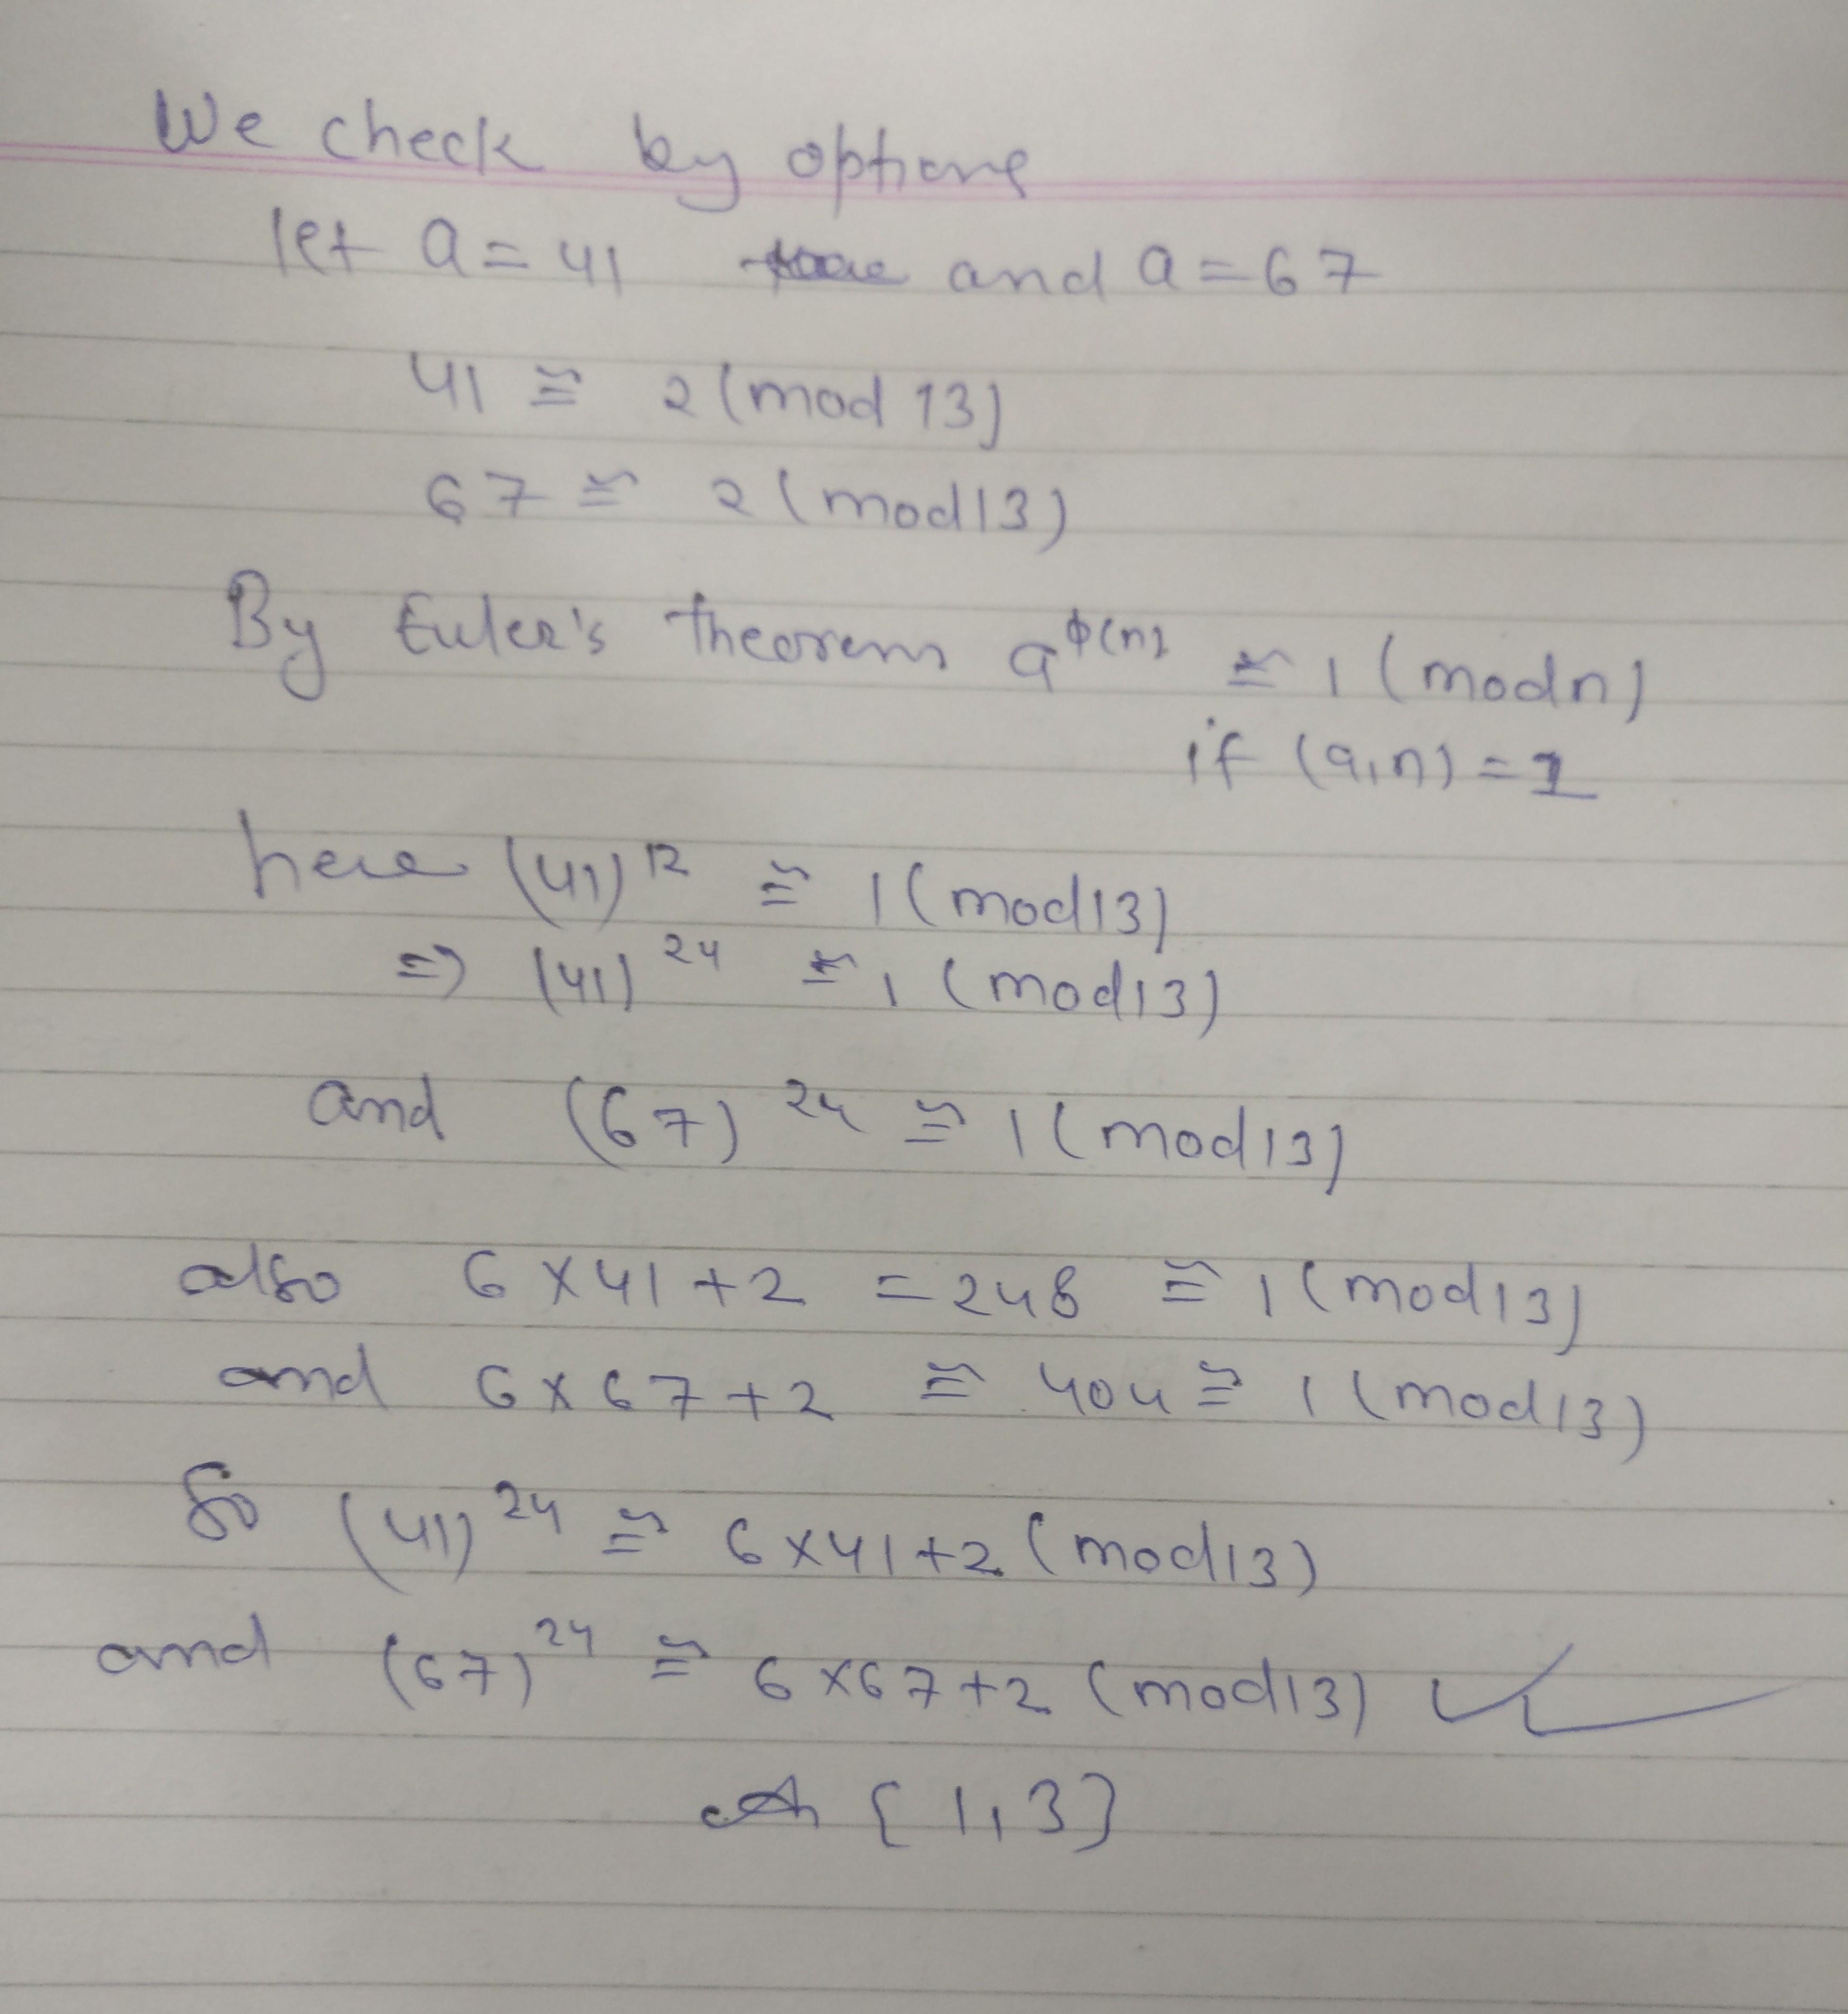 We check by options
let a = 41 and a = 67
41 ≅ 2 (mod 13)
67 ≅ 2 (mod 13)
By Euler's theorem a^ϕ(n) ≅ 1 (mod n)
if (a, n) = 1
here (41)^12 ≅ 1 (mod 13)
⇒ (41)^24 ≅ 1 (mod 13)
and (67)^24 ≅ 1 (mod 13)
also 6 × 41 + 2 = 248 ≅ 1 (mod 13)
and 6 × 67 + 2 ≅ 404 ≅ 1 (mod 13)
So (41)^24 ≅ 6 × 41 + 2 (mod 13)
and (67)^24 ≅ 6 × 67 + 2 (mod 13) ✓
{1, 3}